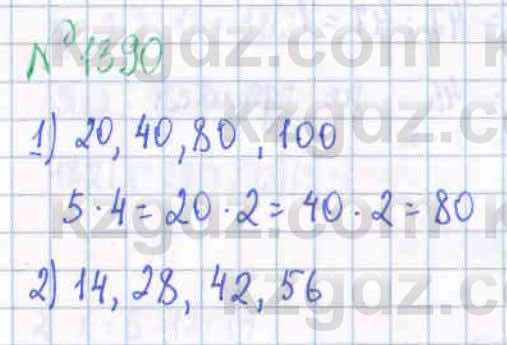 № 1390
1) 20, 40, 80, 100
5 · 4 = 20 · 2 = 40 · 2 = 80
2) 14, 28, 42, 56
kzgdz.com